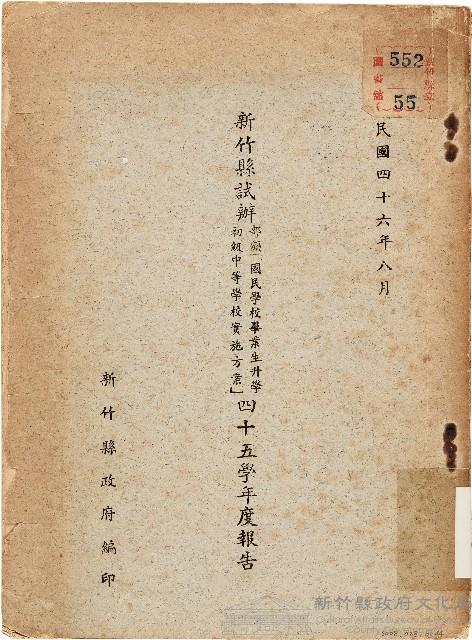 民國四十六年八月
新竹縣試辦部頒「國民學校畢業生升學初級中等學校實施方案」四十五學年度報告
新竹縣政府編印
552
55
新竹縣政府文化局